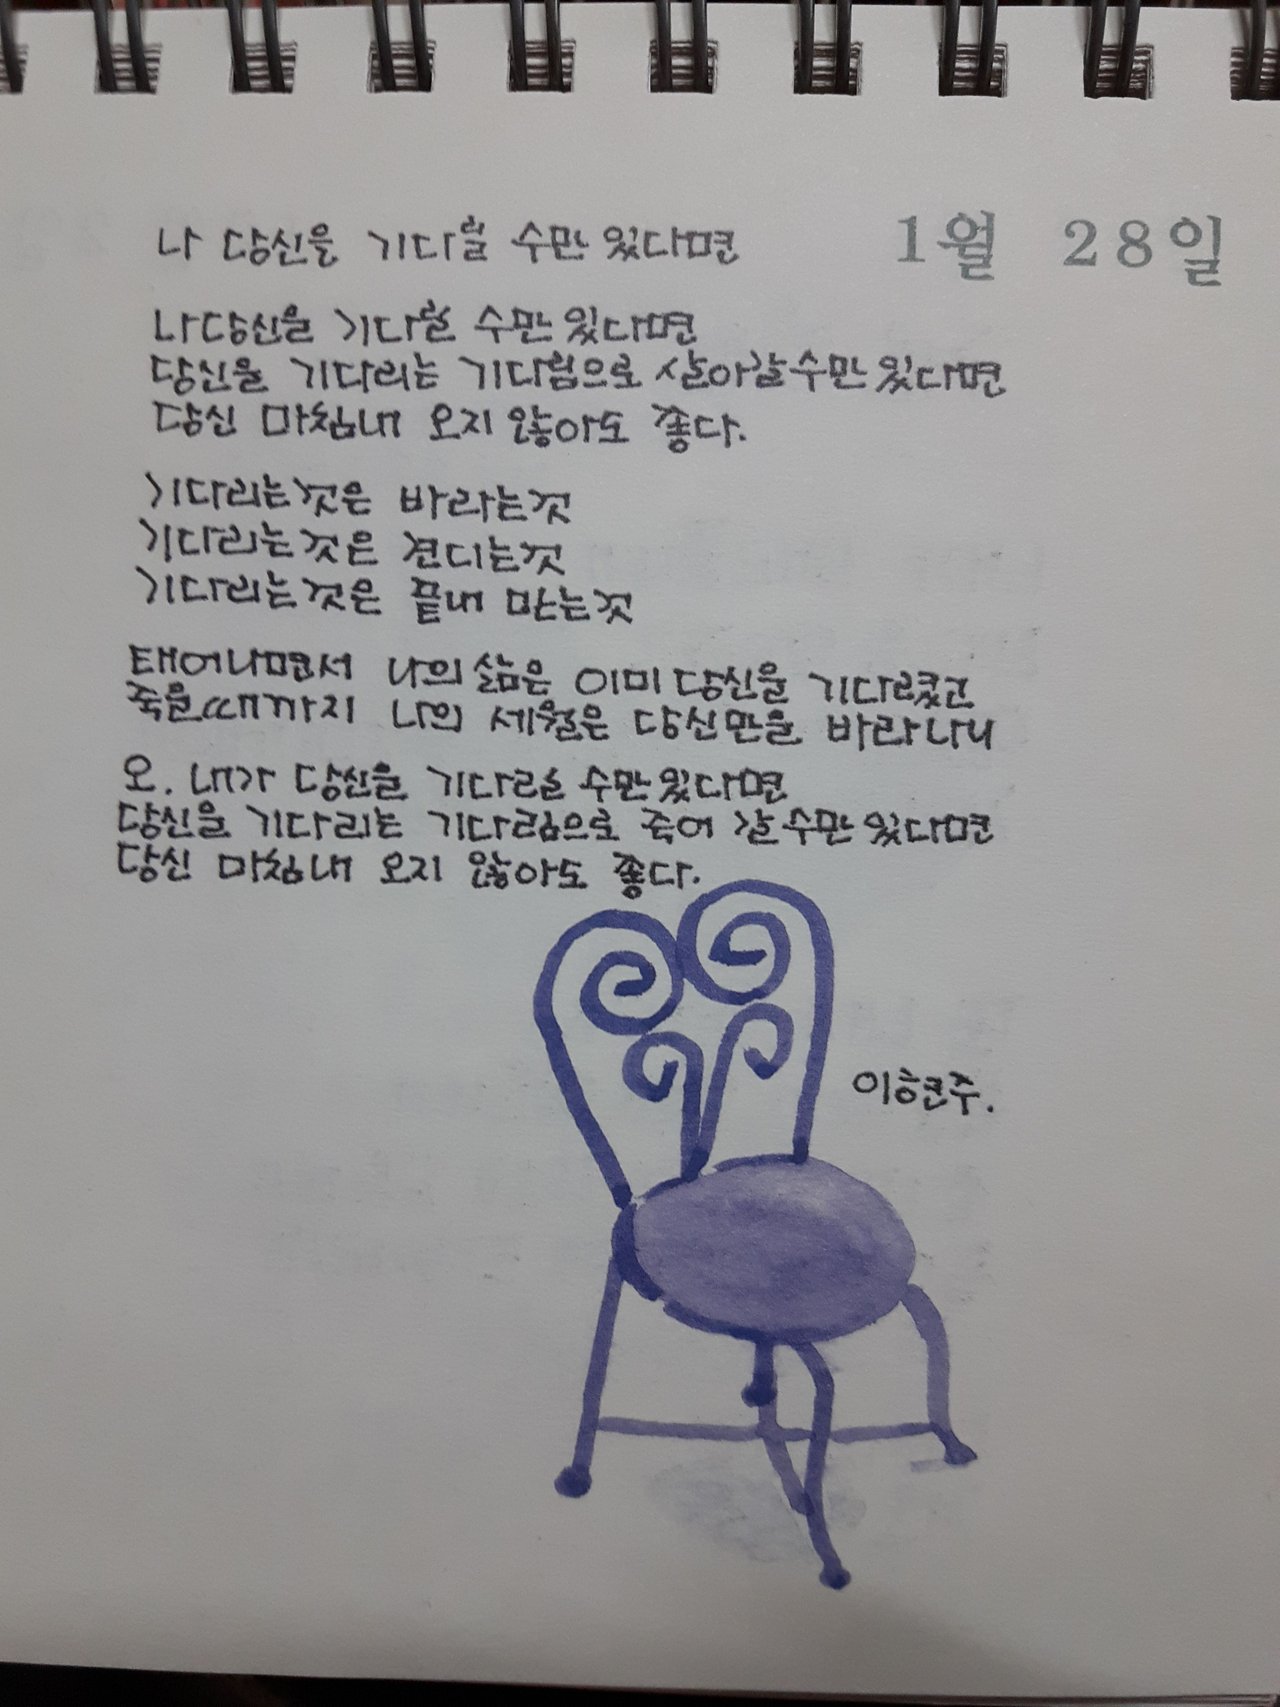 1월 28일
나 당신을 기다릴 수만 있다면
나 당신을 기다릴 수만 있다면
당신을 기다리는 기다림으로 살아갈 수만 있다면
당신 마침내 오지 않아도 좋다.
기다리는 것은 바라는 것
기다리는 것은 견디는 것
기다리는 것은 끝내 만는 것
태어나면서 나의 삶은 이미 당신을 기다렸고
죽을 때까지 나의 세월은 당신만을 바라나니
오. 내가 당신을 기다릴 수만 있다면
당신을 기다리는 기다림으로 죽어 갈 수만 있다면
당신 마침내 오지 않아도 좋다.
이현주.